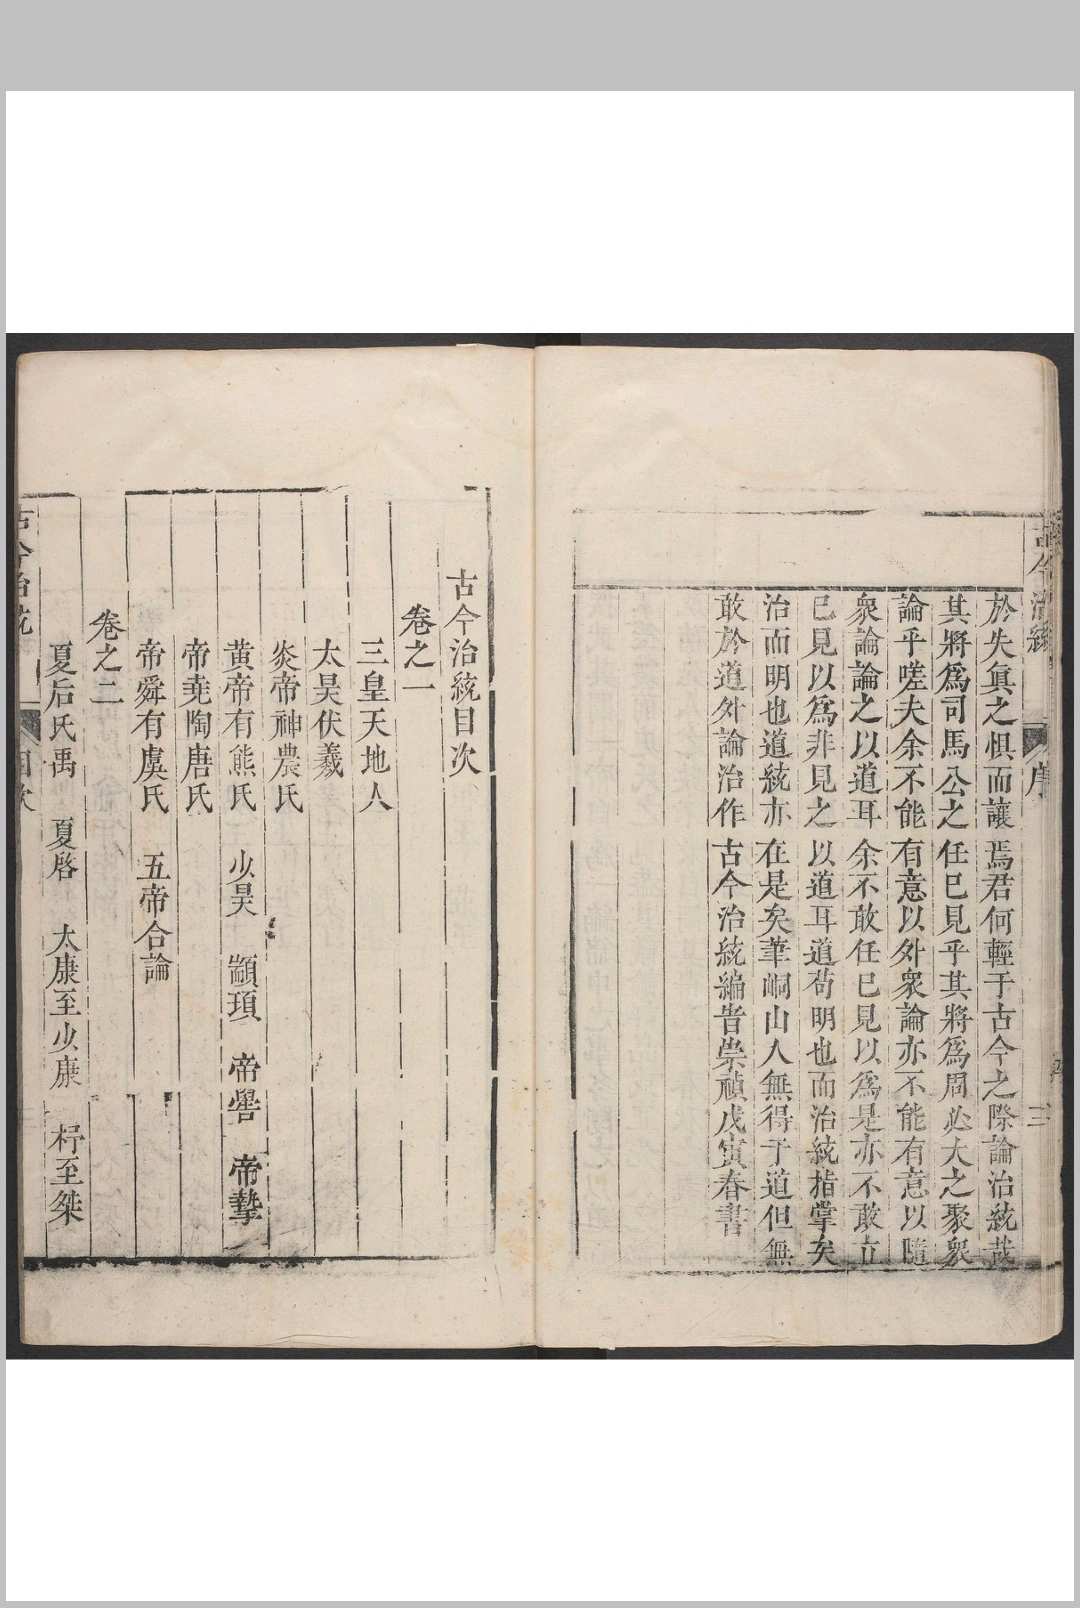 古今治統
序
三
於失眞之惧而讓焉君何輕于古今之際論治統哉
其將爲司馬公之任已見乎其將爲周必大之聚衆
論乎嗟夫余不能有意以外衆論亦不能有意以隨
衆論論之以道耳余不敢任已見以爲是亦不敢立
已見以爲非見之以道耳道苟明也而治統指掌矣
治而明也道統亦在是矣葦峒山人無得于道但無
敢於道外論治作古今治統編旹崇禎戊寅春書
古今治統目次
卷之一
三皇天地人
太昊伏羲
炎帝神農氏
黃帝有熊氏 少昊 顓頊 帝嚳 帝摯
帝堯陶唐氏
帝舜有虞氏 五帝合論
卷之二
夏后氏禹 夏啓 太康至少康 杼至桀
古今治統
目次